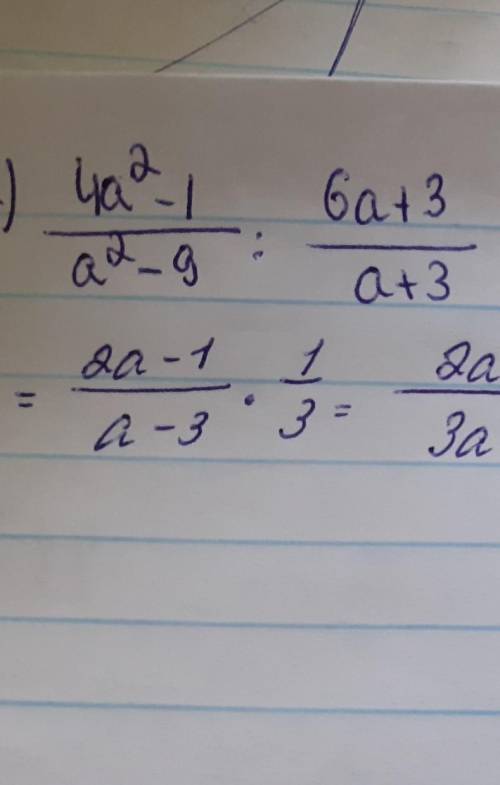 ) (4a² - 1)/(a² - 9) : (6a + 3)/(a + 3)
= (2a - 1)/(a - 3) · 1/3 = 2a/3a